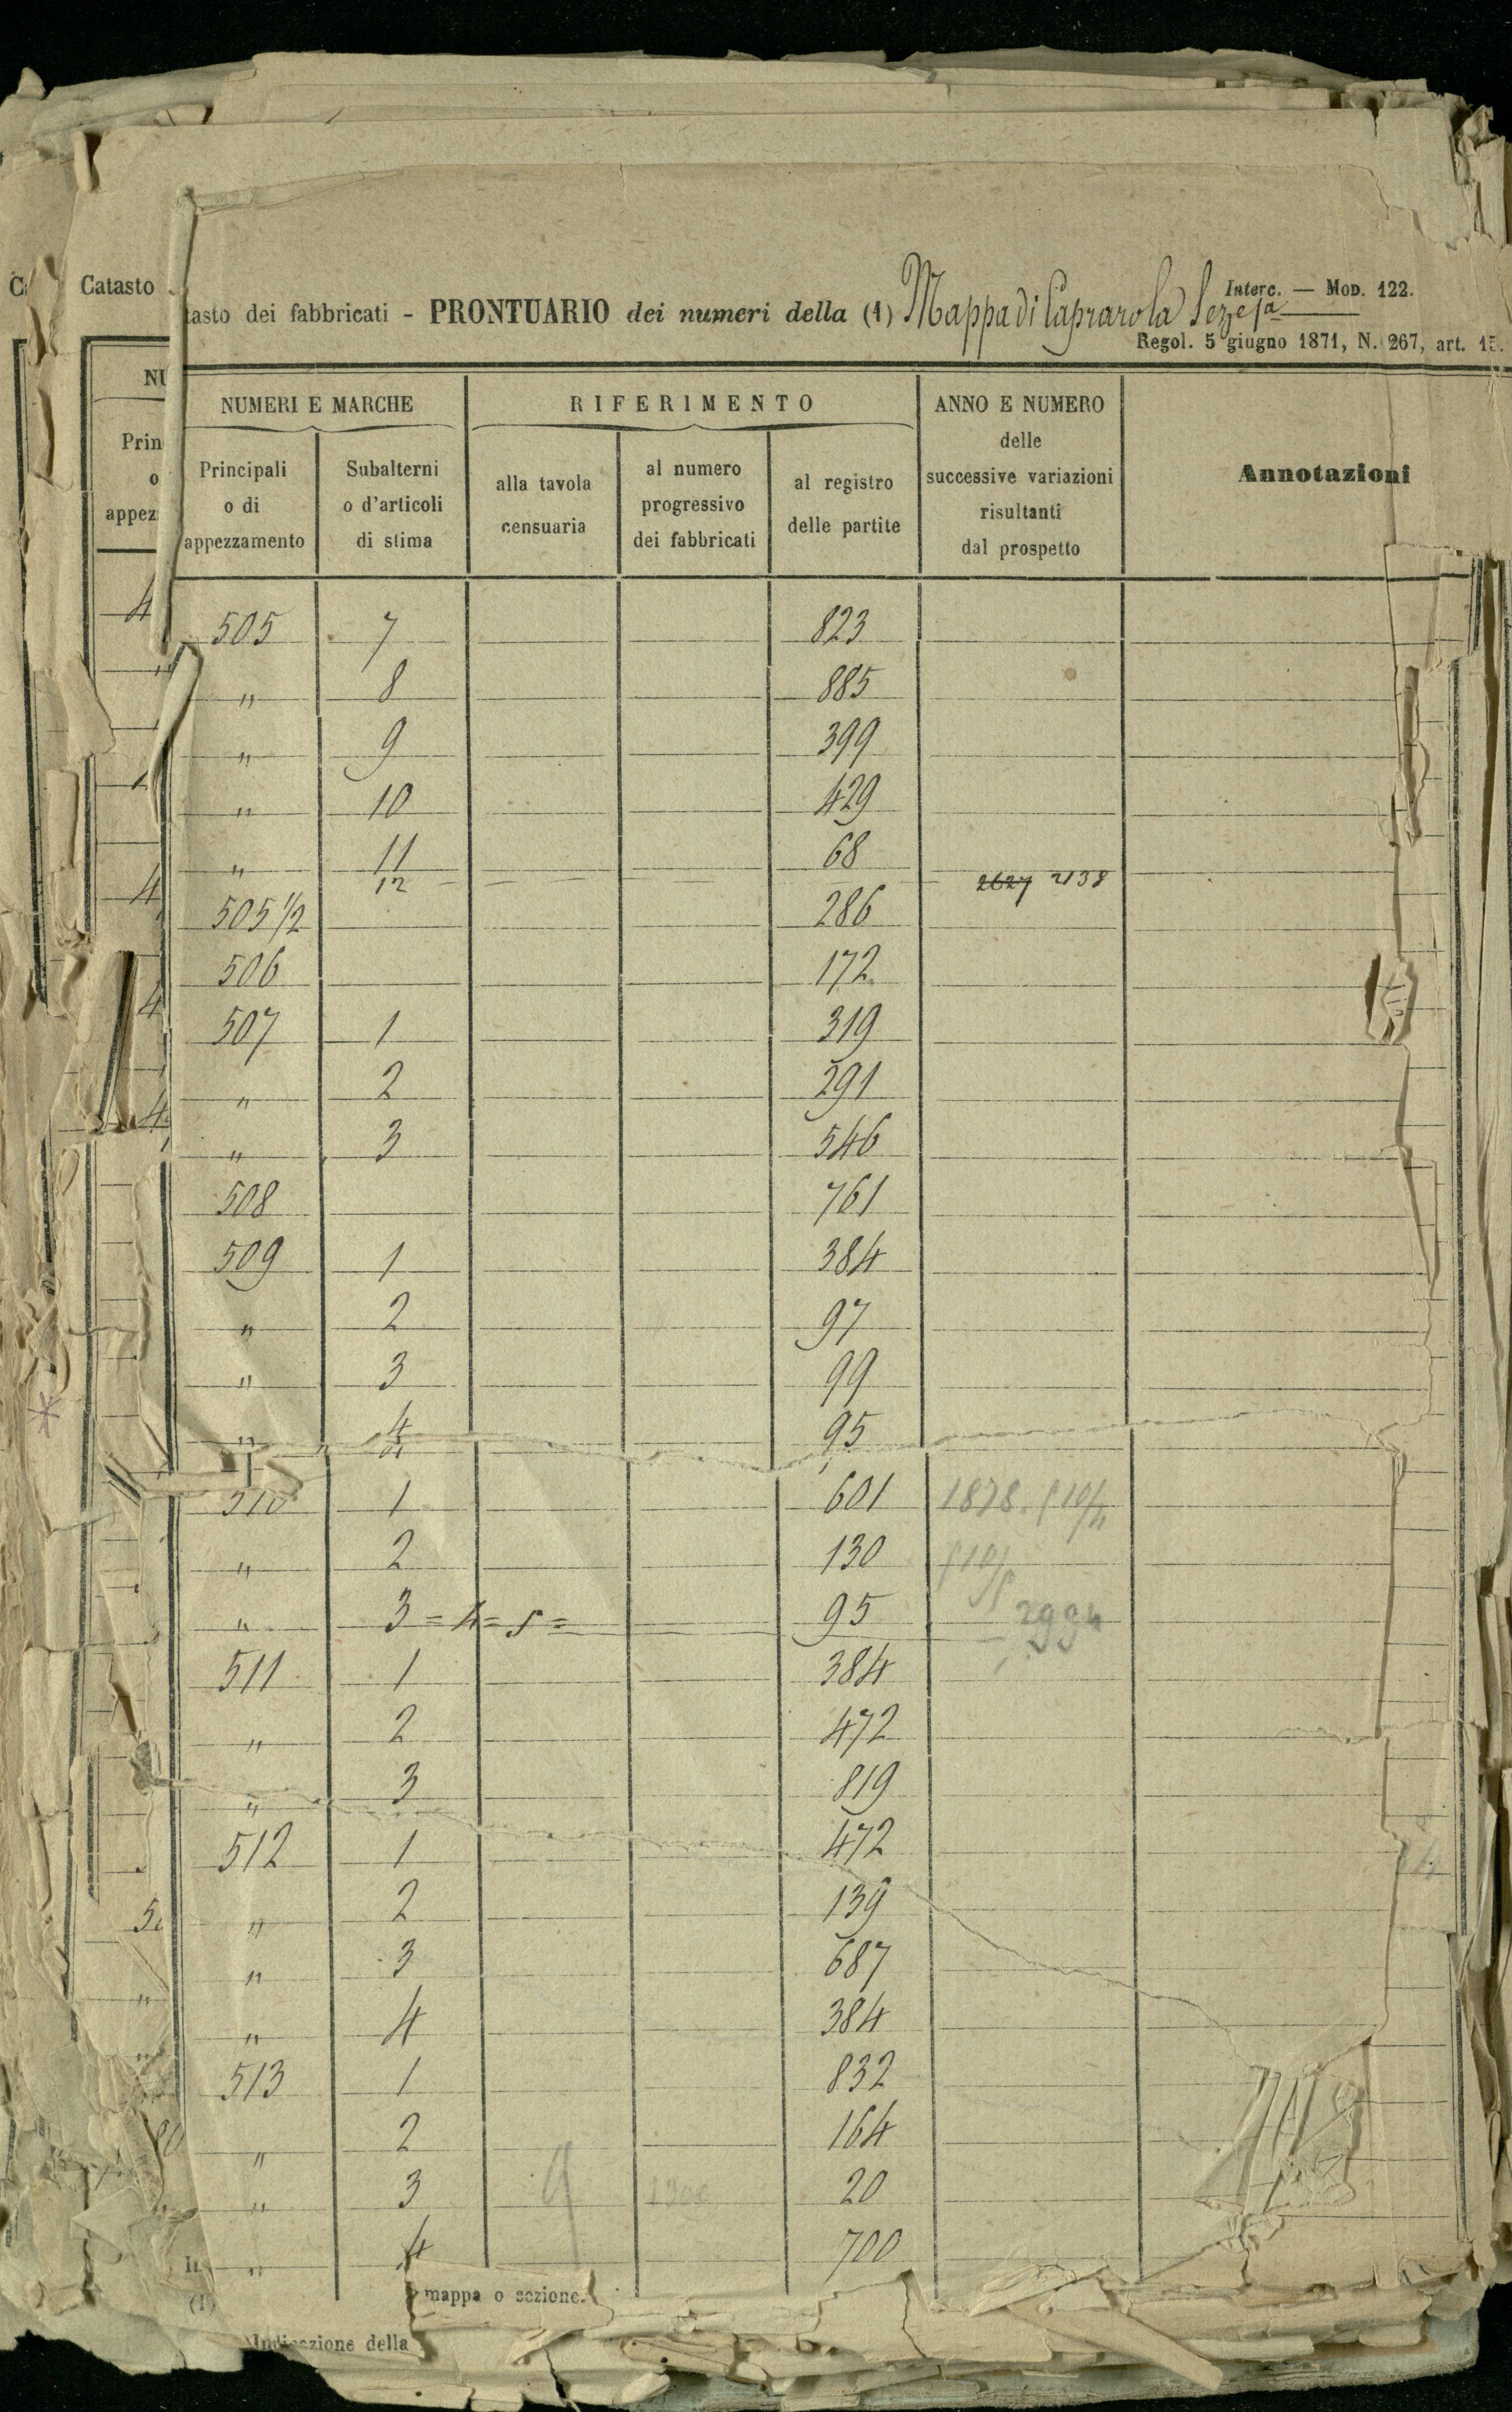 Interc. — Mod. 122.
Catasto
tasto dei fabbricati - PRONTUARIO dei numeri della (1) Mappa di Caprarola Sez.e
Regol. 5 giugno 1871, N. 267, art. 15.
NUMERI E MARCHE RIFERIMENTO ANNO E NUMERO delle successive variazioni risultanti dal prospetto Annotazioni
Principali o di appezzamento Subalterni o d'articoli di stima alla tavola censuaria al numero progressivo dei fabbricati al registro delle partite
505 7 823
" 8 885
" 9 399
" 10 429
" 11 68
12 2627 2138
505 1/2 286
506 172
507 1 319
" 2 291
" 3 546
508 761
509 1 384
" 2 97
" 3 99
" 4 95
510 1 601 1878.
" 2 130
" 3 = 4 = 5 = 95 2994
511 1 384
" 2 472
" 3 819
512 1 472
" 2 139
" 3 687
" 4 384
513 1 832
" 2 164
" 3 20
" 4 700
(1)
mappa o sezione.
Indicazione della